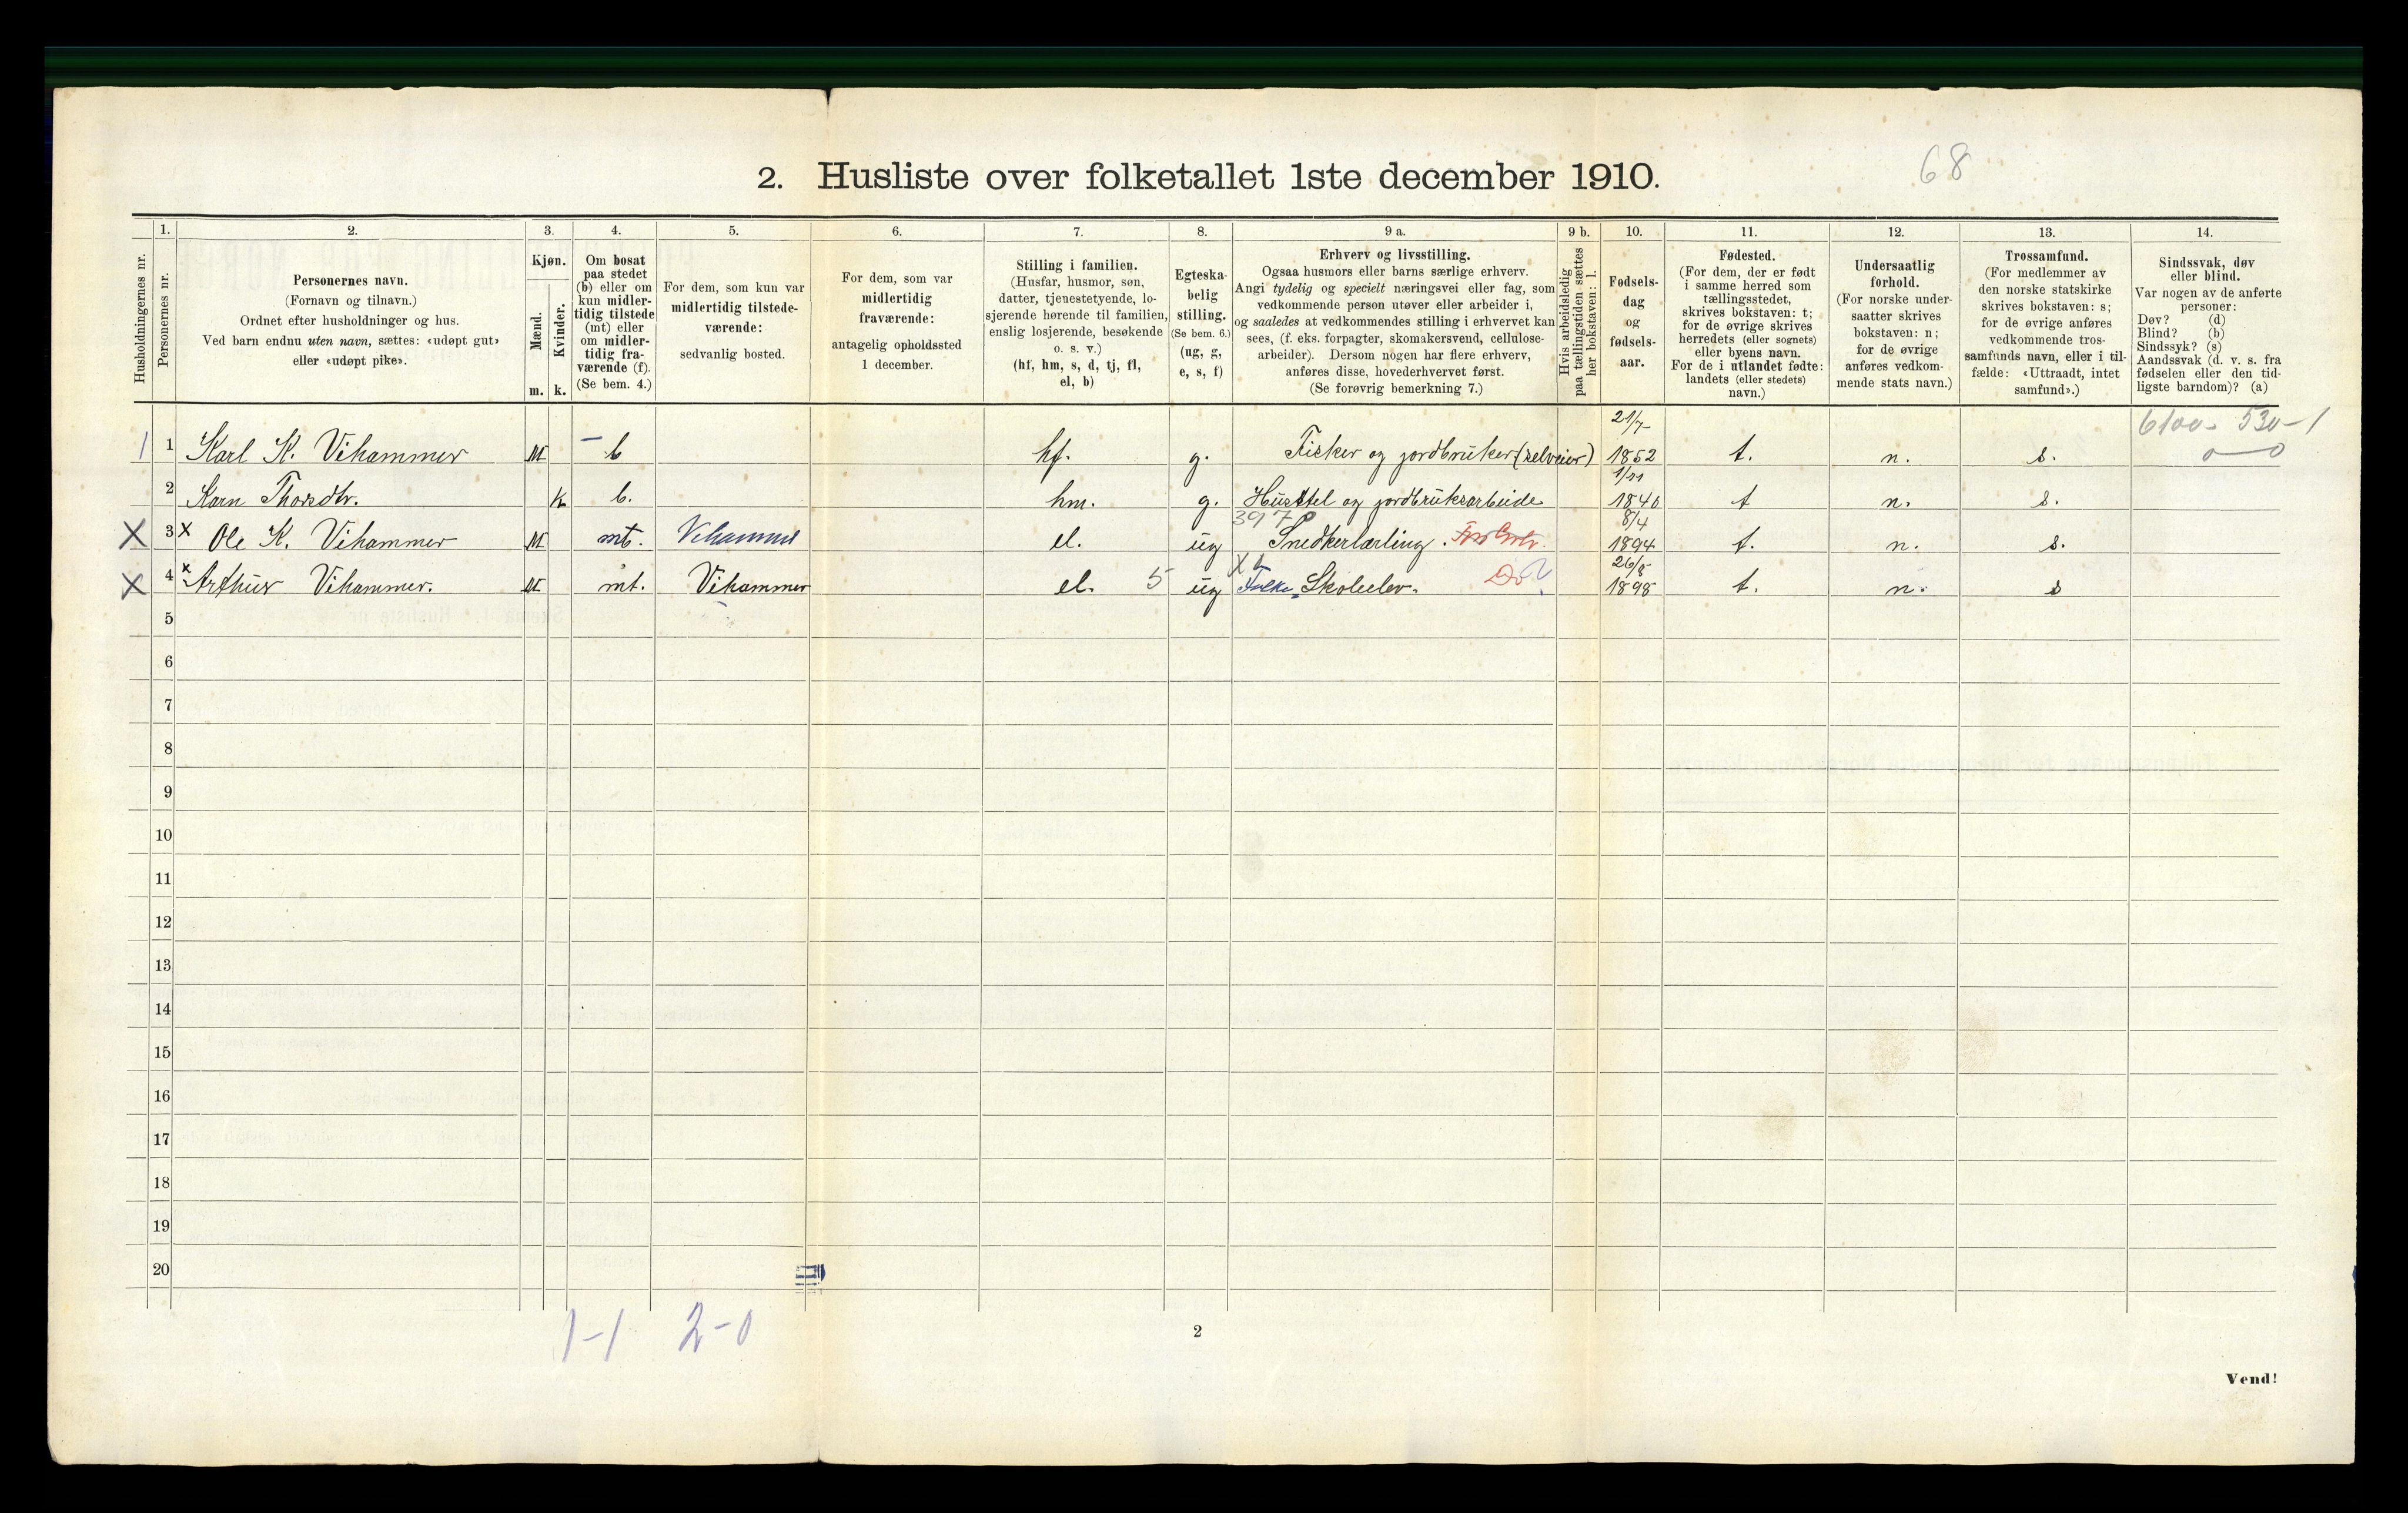 68
2. Husliste over folketallet 1ste december 1910.
Husholdningernes nr.
1.
Personernes nr.
2.
Personernes navn.
(Fornavn og tilnavn.)
Ordnet efter husholdninger og hus.
Ved barn endnu uten navn, sættes: «udøpt gut»
eller «udøpt pike».
3.
Kjøn.
Mænd.
Kvinder.
m. k.
4.
Om bosat
paa stedet
(b) eller om
kun midler-
tidig tilstede
(mt) eller
om midler-
tidig fra-
værende (f).
(Se bem. 4.)
5.
For dem, som kun var
midlertidig tilstede-
værende:
sedvanlig bosted.
6.
For dem, som var
midlertidig
fraværende:
antagelig opholdssted
1 december.
7.
Stilling i familien.
(Husfar, husmor, søn,
datter, tjenestetyende, lo-
sjerende hørende til familien,
enslig losjerende, besøkende
o. s. v.)
(hf, hm, s, d, tj, fl,
el, b)
8.
Egteska-
belig
stilling.
(Se bem. 6.)
(ug, g,
e, s, f)
9 a.
Erhverv og livsstilling.
Ogsaa husmors eller barns særlige erhverv.
Angi tydelig og specielt næringsvei eller fag, som
vedkommende person utøver eller arbeider i,
og saaledes at vedkommendes stilling i erhvervet kan
sees, (f. eks. forpagter, skomakersvend, cellulose-
arbeider). Dersom nogen har flere erhverv,
anføres disse, hovederhvervet først.
(Se forøvrig bemerkning 7.)
9 b.
Hvis arbeidsledig
paa tællingstiden sættes
her bokstaven: l.
10.
Fødsels-
dag
og
fødsels-
aar.
11.
Fødested.
(For dem, der er født
i samme herred som
tællingsstedet,
skrives bokstaven: t;
for de øvrige skrives
herredets (eller sognets)
eller byens navn.
For de i utlandet fødte:
landets (eller stedets)
navn.)
12.
Undersaatlig
forhold.
(For norske under-
saatter skrives
bokstaven: n;
for de øvrige
anføres vedkom-
mende stats navn.)
13.
Trossamfund.
(For medlemmer av
den norske statskirke
skrives bokstaven: s;
for de øvrige anføres
vedkommende tros-
samfunds navn, eller i til-
fælde: «Uttraadt, intet
samfund».)
14.
Sindssvak, døv
eller blind.
Var nogen av de anførte
personer:
Døv? (d)
Blind? (b)
Sindssyk? (s)
Aandssvak (d. v. s. fra
fødselen eller den tid-
ligste barndom)? (a)
21/7 6100 - 530 - 1
1 1 Karl K. Vihammer M b hf. g. Fisker og jordbruker (selveier) 1852 t. n. s. 0 - 0
2 Karn Thorsdtr. K b. hm. g. Husstel og jordbruksarbeide 1840 t n. s.
397 8/4
X 3 x Ole K. Vihammer M mt. Vihammer el. ug Snedkerlærling. 1894 t. n. s.
26/8
X 4 x Arthur Vihammer. M mt. Vihammer el. 5 ug Folke Skoleelev. Do 1898 t. n. s
5
6
7
8
9
10
11
12
13
14
15
16
17
18
19
20
1-1 2-0
2
Vend!